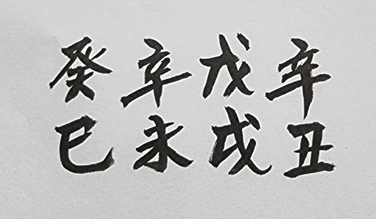 癸辛戊辛
巳未戌丑